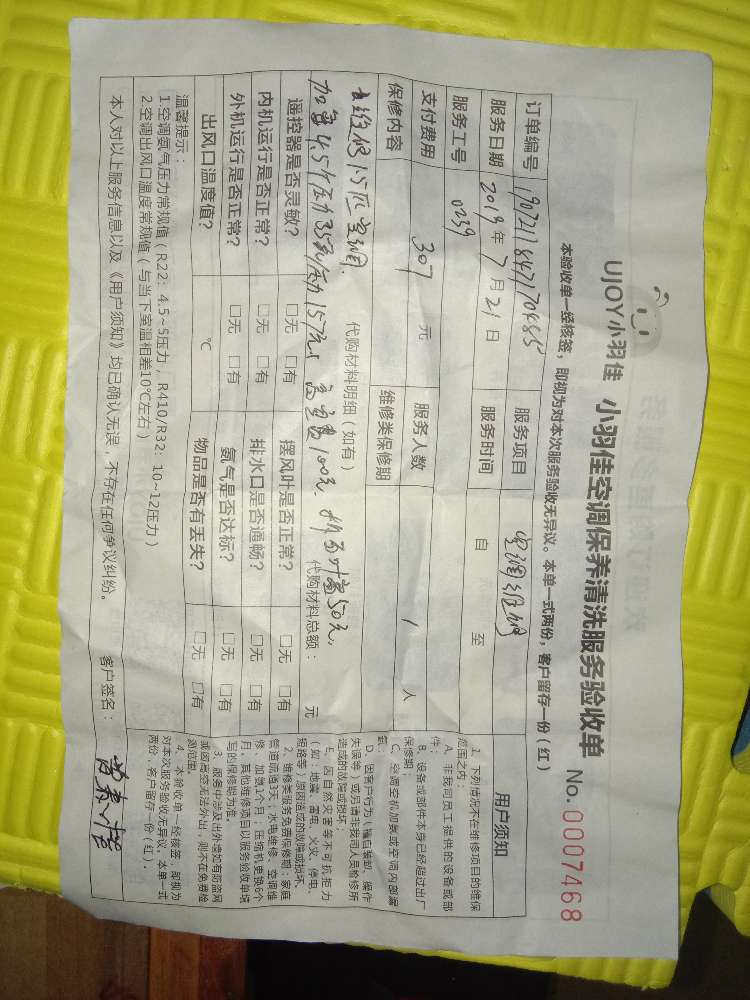 UJOY小羽佳 小羽佳空调保养清洗服务验收单 No.0007468
本验收单一经核签，即视为对本次服务验收无异议。本单一式两份，客户留存一份（红）
订单编号 服务项目 空调维修
服务日期 2019年7月21日 服务时间 自 至
服务工号 0239
支付费用 307 元 服务人数 1 人
保修内容 维修类保修期
代购材料明细（如有） 代购材料总额： 元
1.5匹空调
157元 100元 50元
遥控器是否灵敏？ □无 □有 摆风叶是否正常？ □无 □有
内机运行是否正常？ □无 □有 排水口是否通畅？ □无 □有
外机运行是否正常？ □无 □有 氨气是否达标？ □无 □有
出风口温度值？ ℃ 物品是否有丢失？ □无 □有
温馨提示：
1.空调氨气压力常规值（R22：4.5~5压力，R410/R32：10~12压力）
2.空调出风口温度常规值（与当下室温相差10℃左右）
本人对以上服务信息以及《用户须知》均已确认无误，不存在任何争议纠纷。 客户签名：
用户须知
1、下列情况不在维修项目的维保
范围之内：
A、非我司员工提供的设备或部
件；
B、设备或部件本身已经超过出厂
保修期；
C、空调空机加氨或空调内部漏
氨；
D、因客户行为（擅自装卸、操作
失误等）或另请非我司人员检修所
造成的故障或损坏；
E、因自然灾害等不可抗拒力
（如：地震、雷电、火灾、停电、
短路等）原因造成的故障或损坏。
2、维修类服务免费保修期：家庭
管道疏通3天，水电维修、空调维
修、加氨1个月；压缩机更换6个
月，其他维修项目以服务验收单填
写的保修期为准。
3、服务中涉及出外墙如有防盗网
或因高空无法外出，则不在免费检
测范围。
4、本验收单一经核签，即视为
对本次服务验收无异议。本单一式
两份，客户留存一份（红）。